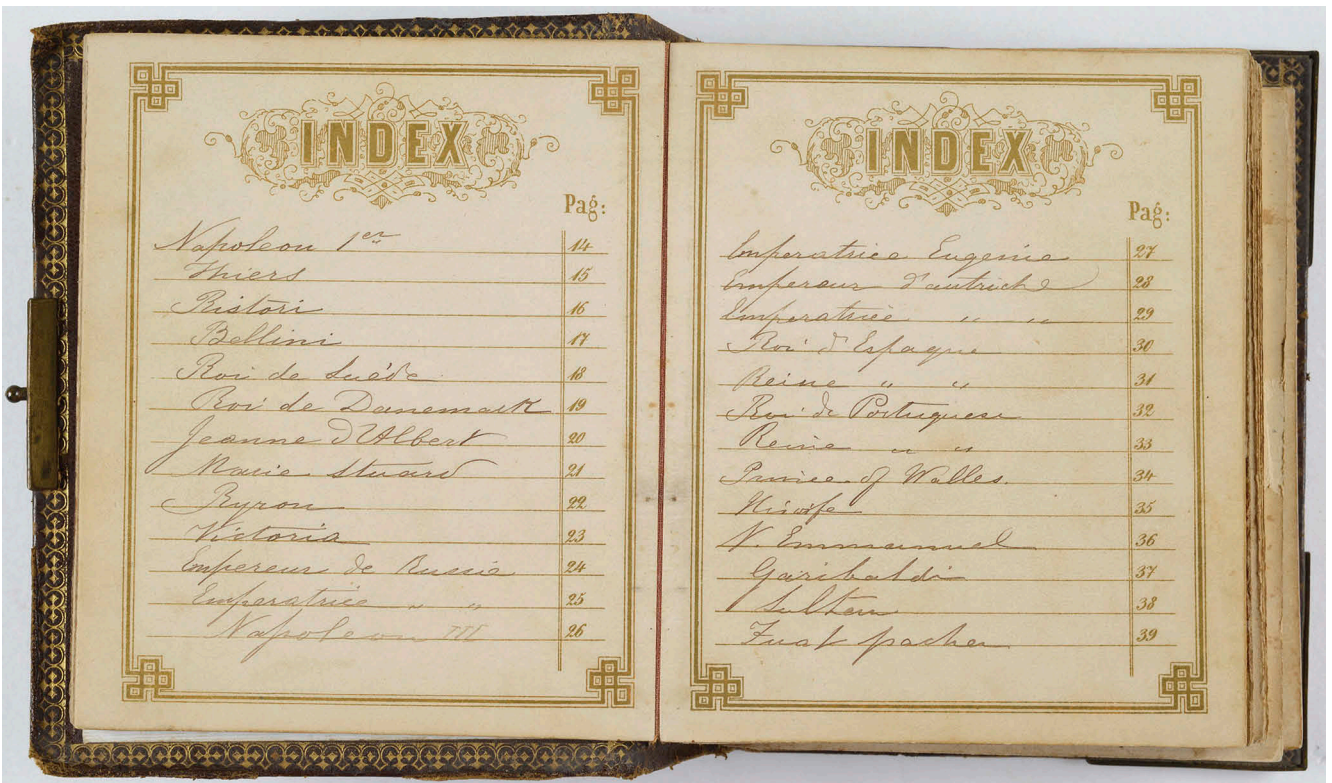 INDEX
Pag:
Napoleon 1er 14
Thiers 15
Ristori 16
Bellini 17
Roi de Suéde 18
Roi de Danemark 19
Jeanne d'Albert 20
Marie Stuard 21
Byron 22
Victoria 23
Empereur de Russie 24
Emperatrice " " 25
Napoleon III 26
INDEX
Pag:
Imperatrice Eugenie 27
Empereur d'autriche 28
Imperatrice " " 29
Roi d'Espagne 30
Reine " " 31
Roi de Portuguese 32
Reine " " 33
Prince of Walles. 34
35
V. Emmanuel 36
Garibaldi 37
Sultan 38
Fuat pacha 39